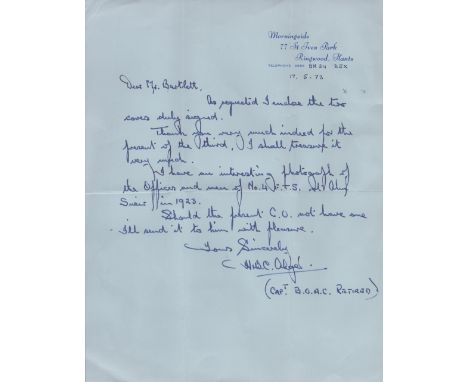 Morningside
77 St Ives Park
Ringwood, Hants
BH24 2JX
17. 5. 73
Dear Mr. Bartlett.
As requested I enclose the two
covers duly signed.
Thank you very much indeed for the
present of the third, I shall treasure it
very much.
I have an interesting photograph of
the Officers and men of No. 4 F.T.S.
Sueir in 1923.
Should the present C.O. not have one
I'll send it to him with pleasure.
Yours Sincerely
(CAPT. B.O.A.C. RETIRED)